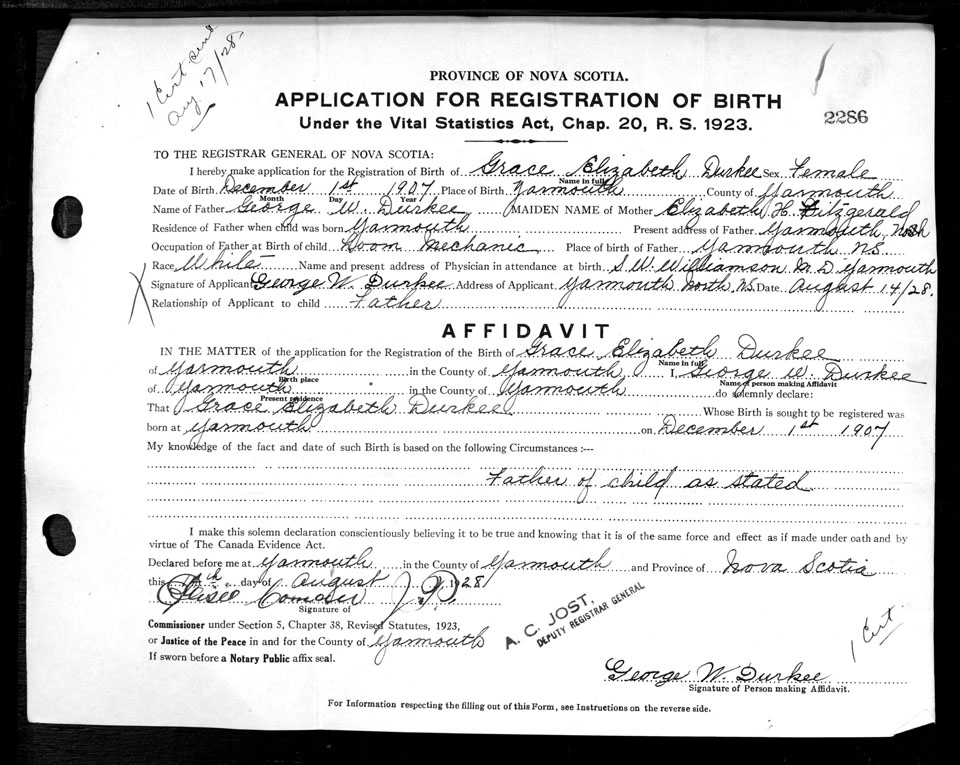 1 Cert sent
Aug 17/28
PROVINCE OF NOVA SCOTIA.
APPLICATION FOR REGISTRATION OF BIRTH
Under the Vital Statistics Act, Chap. 20, R. S. 1923.
2286
TO THE REGISTRAR GENERAL OF NOVA SCOTIA:
I hereby make application for the Registration of Birth of Grace Elizabeth Durkee Sex Female
Name in full
Date of Birth December 1st 1907 Place of Birth Yarmouth County of Yarmouth
Month Day Year
Name of Father George W. Durkee (MAIDEN NAME of Mother Elizabeth H. Fitzgerald
Residence of Father when child was born Yarmouth Present address of Father Yarmouth, North
Occupation of Father at Birth of child Loom Mechanic Place of birth of Father Yarmouth NS.
Race White Name and present address of Physician in attendance at birth S. W. Williamson M.D Yarmouth
Signature of Applicant George W. Durkee Address of Applicant Yarmouth North, NS. Date August 14/28.
Relationship of Applicant to child Father
AFFIDAVIT
IN THE MATTER of the application for the Registration of the Birth of Grace Elizabeth Durkee
Name in full
of Yarmouth in the County of Yarmouth, I, George W. Durkee
Birth place Name of person making Affidavit
of Yarmouth in the County of Yarmouth do solemnly declare:
Present residence
That Grace Elizabeth Durkee Whose Birth is sought to be registered was
born at Yarmouth on December 1st 1907
My knowledge of the fact and date of such Birth is based on the following Circumstances :---
Father of child as stated
I make this solemn declaration conscientiously believing it to be true and knowing that it is of the same force and effect as if made under oath and by
virtue of The Canada Evidence Act.
Declared before me at Yarmouth in the County of Yarmouth and Province of Nova Scotia
this day of August 1928
J.P.
Signature of
Commissioner under Section 5, Chapter 38, Revised Statutes, 1923,
or Justice of the Peace in and for the County of Yarmouth
If sworn before a Notary Public affix seal.
A. C. JOST,
DEPUTY REGISTRAR GENERAL
1 Cert
George W. Durkee
Signature of Person making Affidavit.
For Information respecting the filling out of this Form, see Instructions on the reverse side.